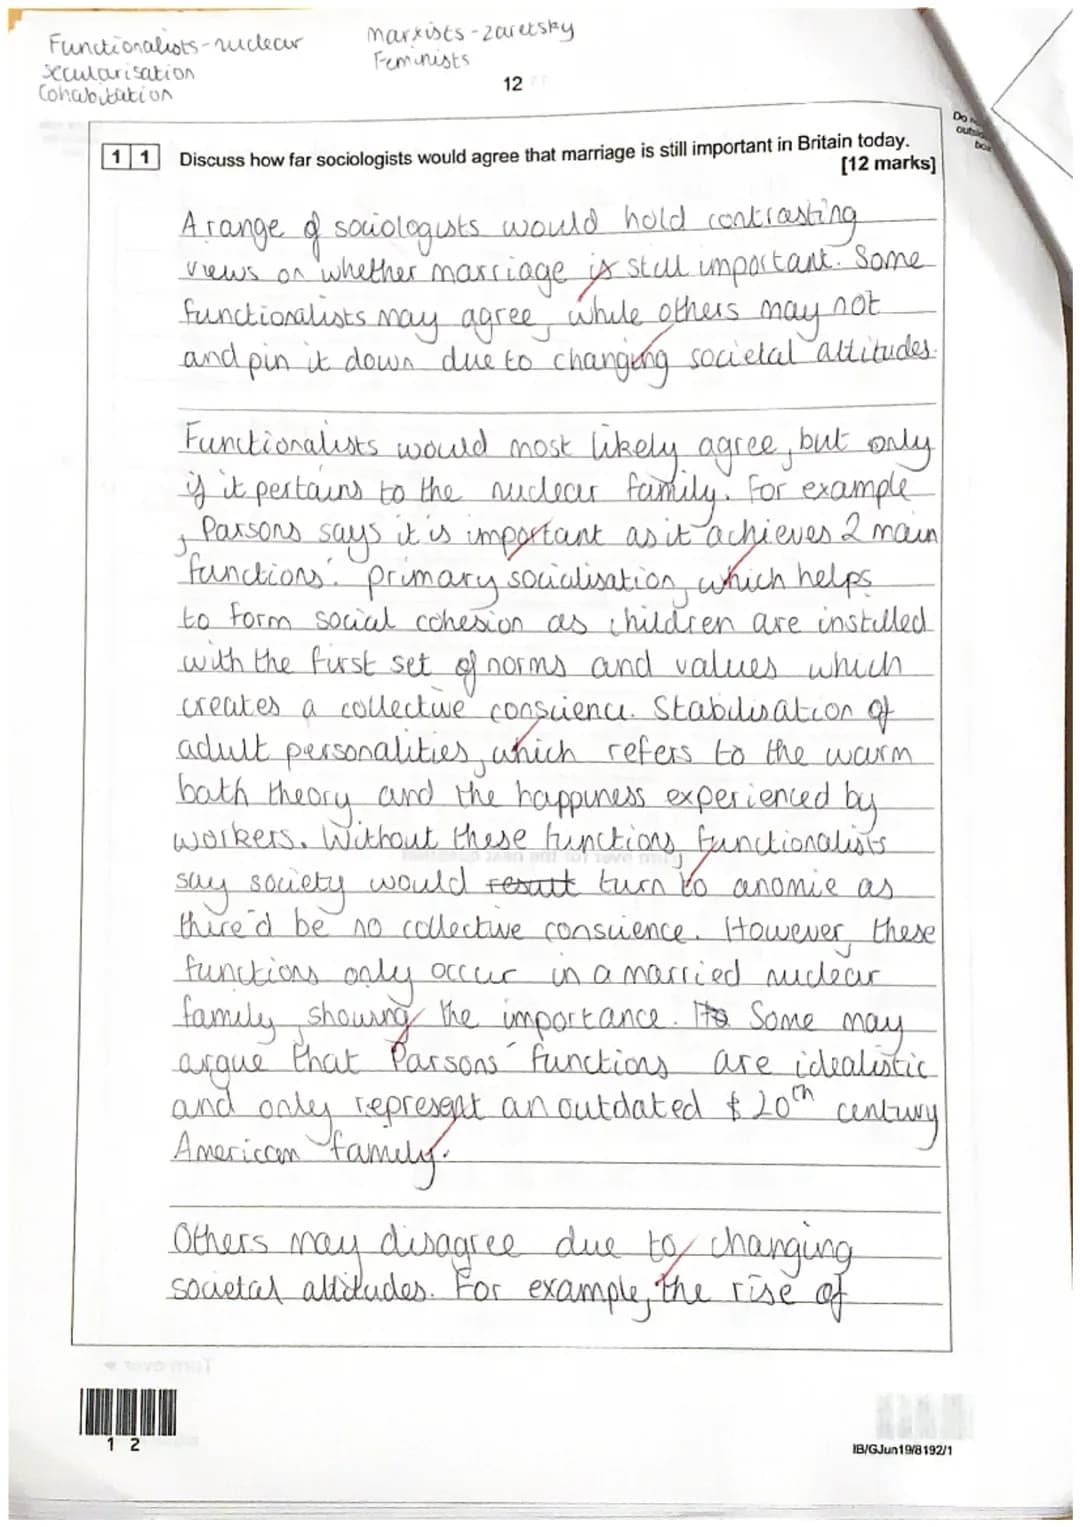 Functionalists - nuclear
secularisation
Cohabitation
Marxists - zaretsky
Feminists
12
Do n
outsid
box
1 1 Discuss how far sociologists would agree that marriage is still important in Britain today.
[12 marks]
A range of sociologists would hold contrasting
views on whether marriage is still important. Some
functionalists may agree, while others may not
and pin it down due to changing societal attitudes.
Functionalists would most likely agree, but only
if it pertains to the nuclear family. For example
, Parsons says it is important as it achieves 2 main
functions: primary socialisation, which helps
to form social cohesion as children are instilled
with the first set of norms and values which
creates a collective conscience. Stabilisation of
adult personalities, which refers to the warm
bath theory and the happiness experienced by
workers. Without these functions, functionalists
say society would result turn to anomie as
there'd be no collective conscience. However, these
functions only occur in a married nuclear
family, showing the importance. Some may
argue that Parsons' functions are idealistic
and only represent an outdated 20th century
American family.
Others may disagree due to changing
societal attitudes. For example, the rise of
Turn over ►
1 2
IB/G/Jun19/8192/1